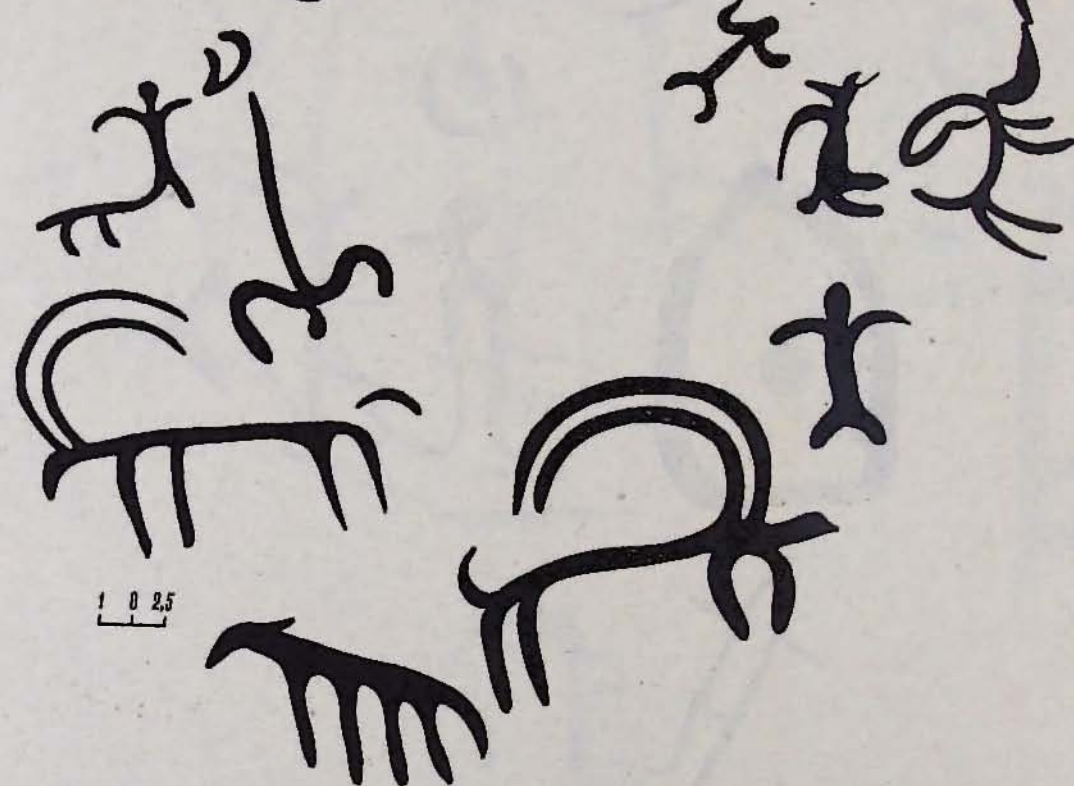 1 0 2,5